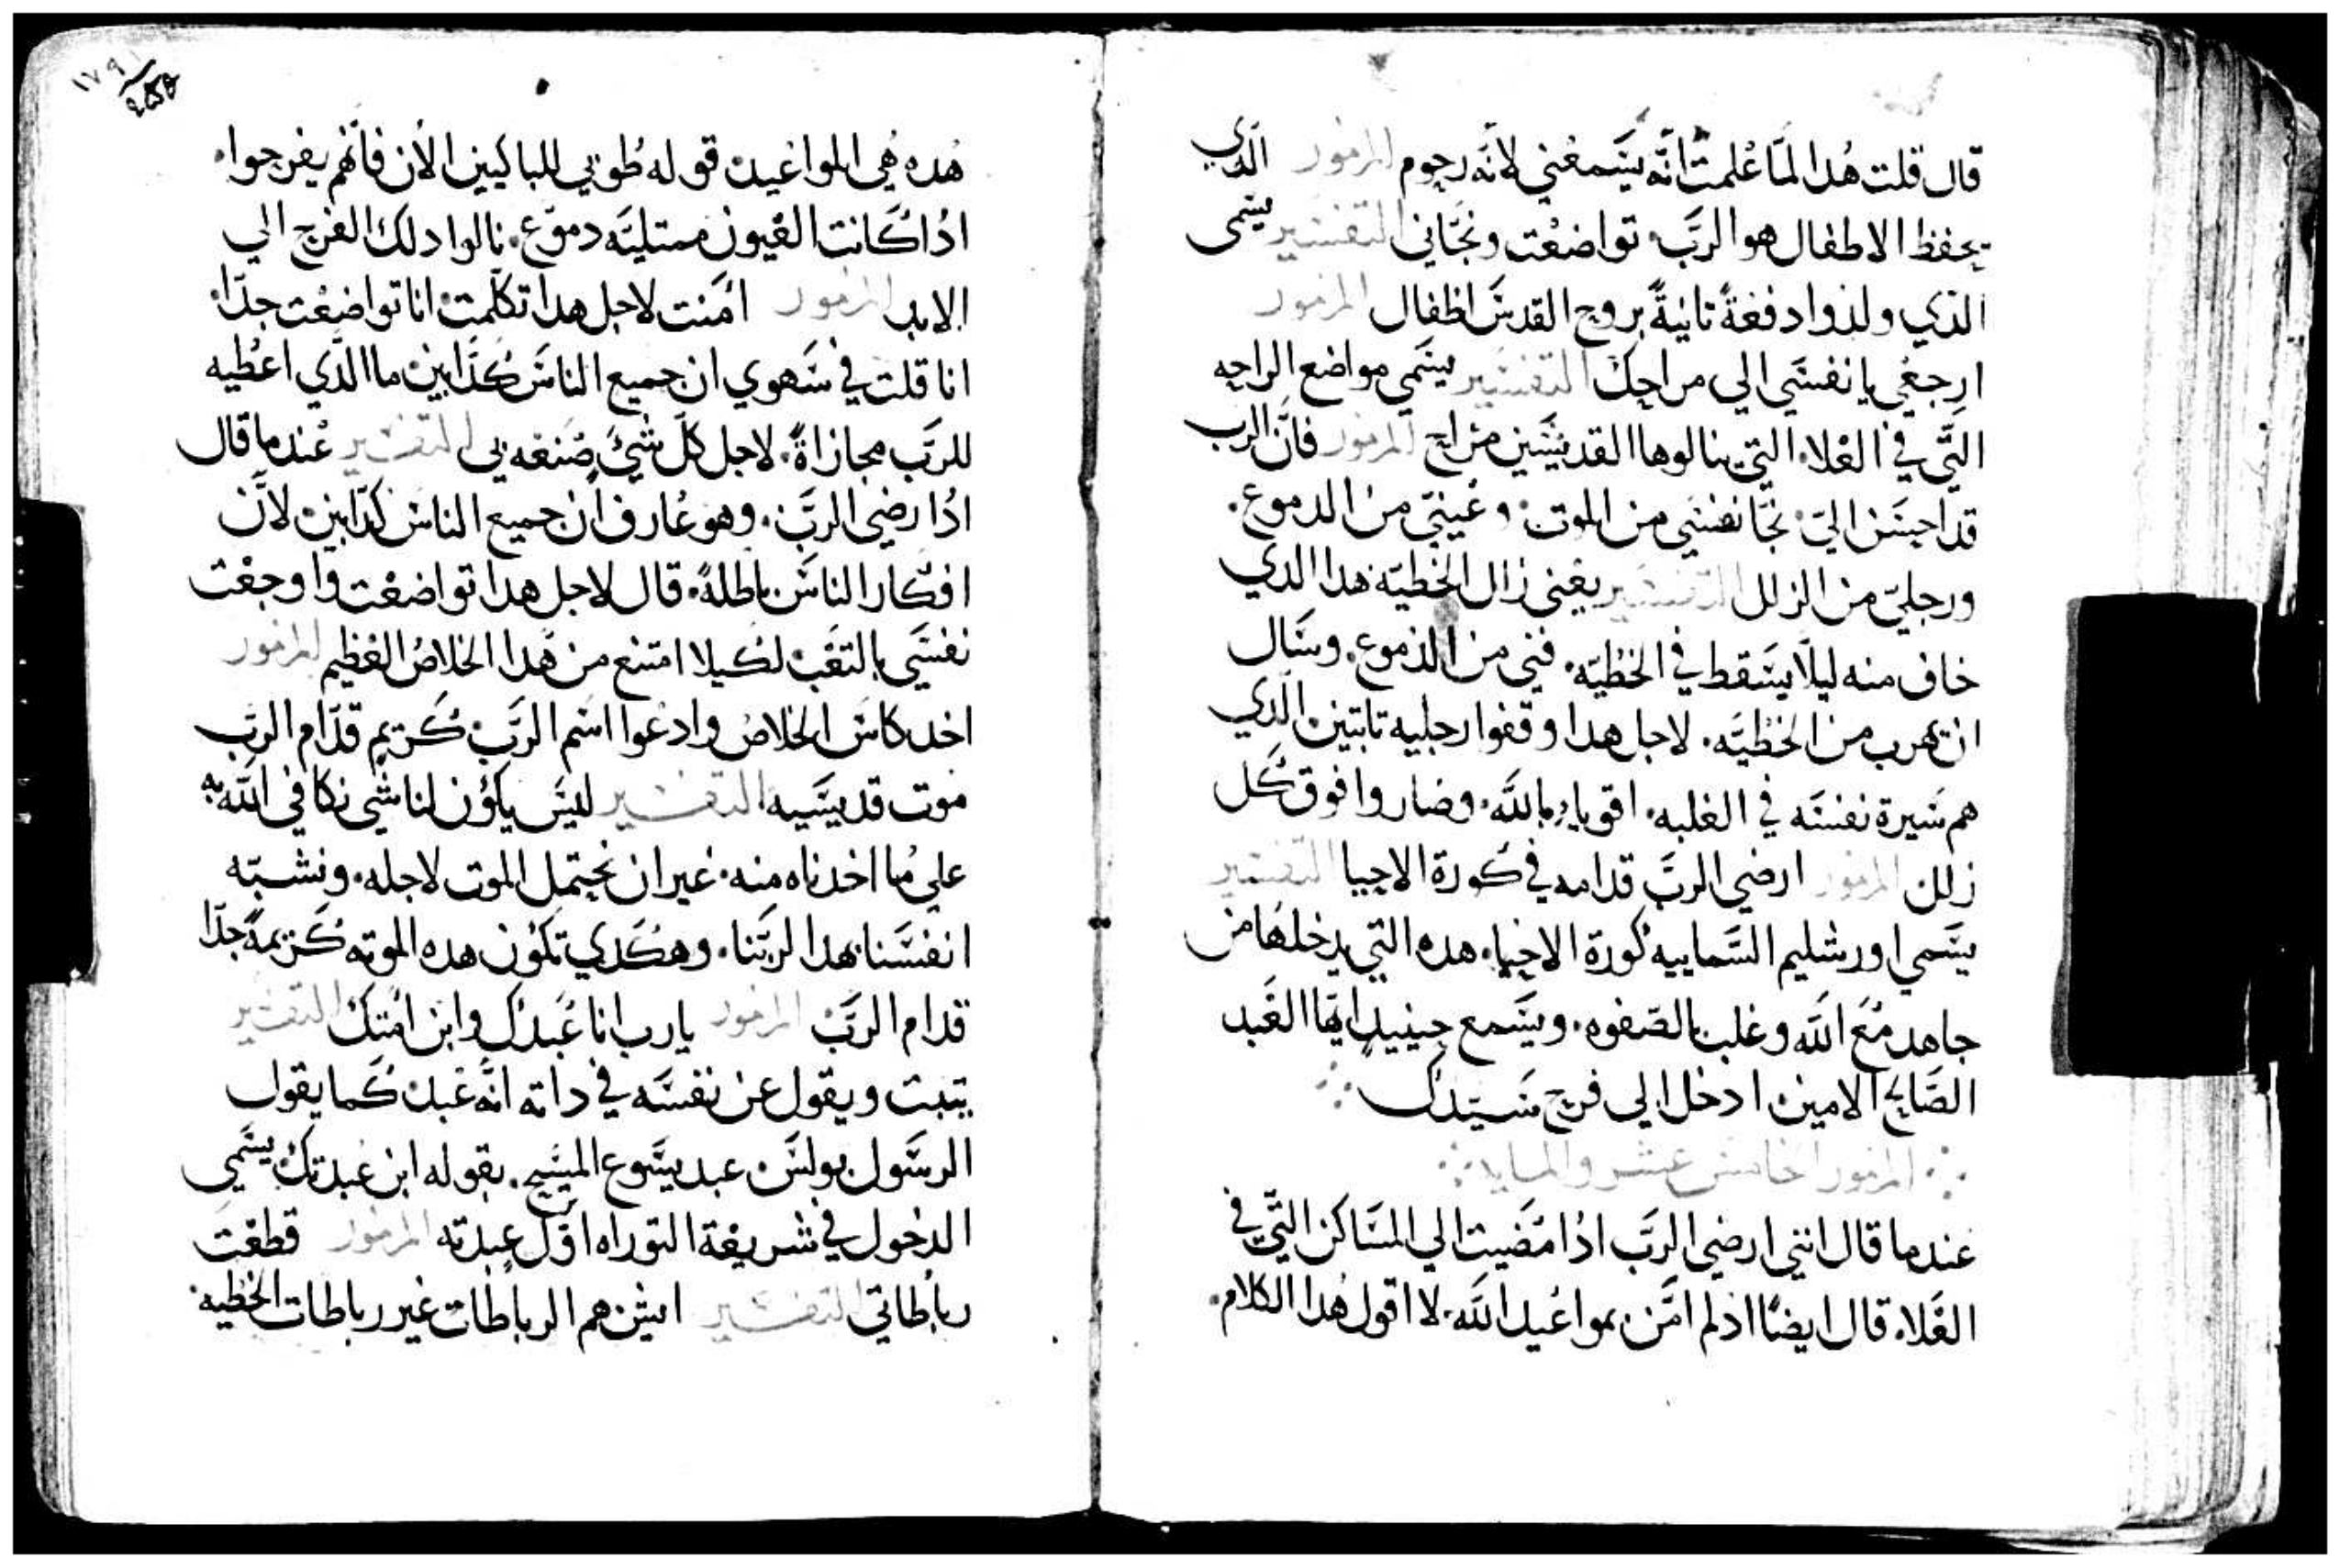 قال قلت هدا لما علمت انه يسمعني لانه رحوم المزمور الدي
يحفظ الاطفال هو الرب تواضعت ونجاني التفسير يسمى
الذي ولدوا دفعة ثانية بروح القدس اطفال المزمور
ارجعي يا نفسي الي مراحك التفسير يسمي مواضع الراحه
التي في العلاء التي ينالوها القديسين مراح المزمور فان الرب
قد احسن الي نجا نفسي من الموت وعيني من الدموع
ورجلي من الزلل التفسير يعني زال الخطيه هدا الدي
خاف منه ليلا يسقط في الخطيه فني من الدموع وسال
ان يهرب من الخطيه لاجل هدا وقفوا رجليه تابتين الذي
هم سيرة نفسه في الغلبه اقويا بالله وصاروا فوق كل
زلل المزمور ارضي الرب قدامه في كورة الاحيا التفسير
يسمي اورشليم السماييه كورة الاحيا هده التي يدخلها من
جاهد مع الله وغلب بالصفوه ويسمع حينيد ايها العبد
الصالح الامين ادخل الي فرح سيدك
المزمور الخامس عشر والمايه
عندما قال انني ارضي الرب ادا مضيت الي المساكن التي في
العلاء قال ايضا اذ لم امن بمواعيد الله لا اقول هدا الكلام
١٧٩
هده هي المواعيد قوله طوبي للباكيين الان فانهم يفرحوا
ادا كانت العيون ممتليه دموع نالوا دلك الفرح الي
الابد المزمور امنت لاجل هدا تكلمت انا تواضعت جدا
انا قلت في سهوي ان جميع الناس كدابين ما الذي اعطيه
للرب مجازاة لاجل كل شيء صنعه بي التفسير عندما قال
ادا رضي الرب وهو عارف ان جميع الناس كدابين لان
افكار الناس باطلة قال لاجل هدا تواضعت واوجعت
نفسي بالتعب لكيلا امتنع من هدا الخلاص العظيم المزمور
اخد كاس الخلاص وادعوا اسم الرب كريم قدام الرب
موت قديسيه التفسير ليس يكون لنا شي نكافي الله به
علي ما اخدناه منه غير ان نحتمل الموت لاجله ونشبه
انفسنا بهدا لربنا وهكدي تكون هده الموته كريمة جدا
قدام الرب المزمور يارب انا عبدك وابن امتك التفسير
يتبت ويقول عن نفسه في داته انه عبد كما يقول
الرسول بولس عبد يسوع المسيح بقوله ابن عبدتك يسمي
الدخول في شريعة التوراه اول عبدته المزمور قطعت
رباطاتي التفسير ايش هم الرباطات غير رباطات الخطيه